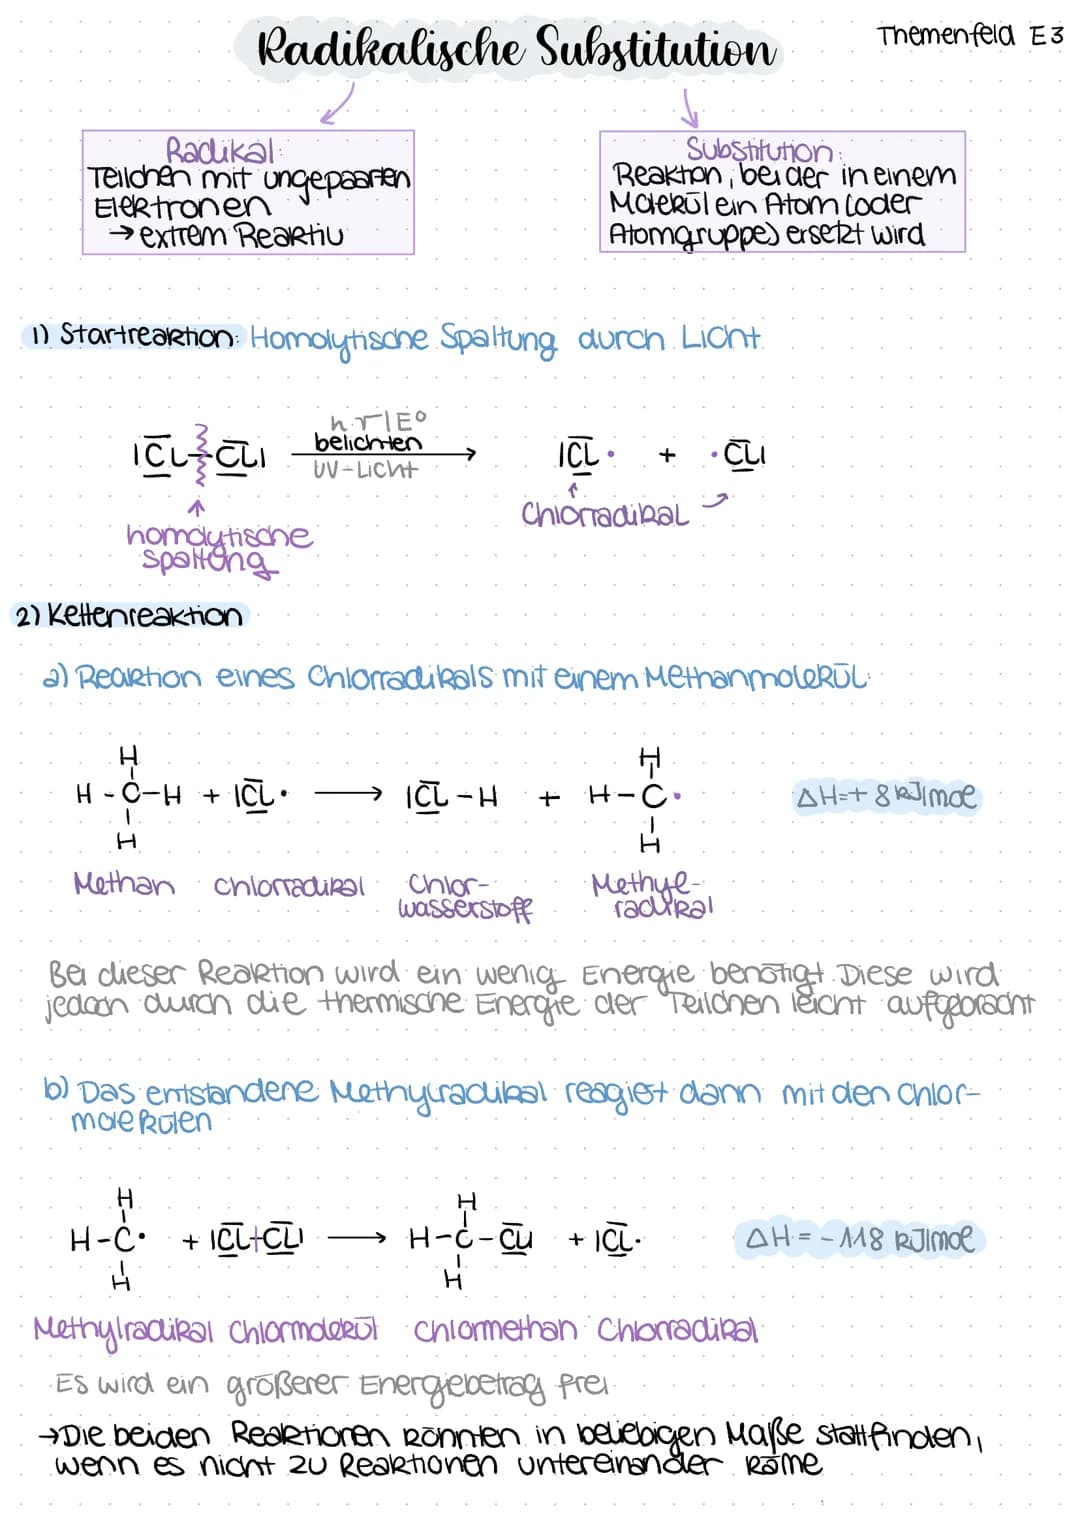 Radikalische Substitution
Themenfeld E3
Radikal:
Teilchen mit ungepaarten
Elektronen
→ extrem Reaktiv
Substitution:
Reaktion, bei der in einem
Molekül ein Atom (oder
Atomgruppe) ersetzt wird
1) Startreaktion: Homolytische Spaltung durch Licht
belichten
UV-Licht
|CL-CL|
|CL· + ·CL|
Chlorradikal
homolytische
Spaltung
2) Kettenreaktion
a) Reaktion eines Chlorradikals mit einem Methanmolekül:
H H
H-C-H + |CL· → |CL-H + H-C· ΔH=+8kJ/mol
H H
Methan Chlorradikal Chlor-
wasserstoff
Methyl-
radikal
Bei dieser Reaktion wird ein wenig Energie benötigt. Diese wird
jedoch durch die thermische Energie der Teilchen leicht aufgebracht
b) Das entstandene Methylradikal reagiert dann mit den Chlor-
molekülen
H H
H-C· + |CL-CL| → H-C-CL| + |CL· ΔH=-118 kJ/mol
H H
Methylradikal Chlormolekül Chlormethan Chlorradikal
Es wird ein größerer Energiebetrag frei
→Die beiden Reaktionen könnten in beliebigen Maße stattfinden,
wenn es nicht zu Reaktionen untereinander käme